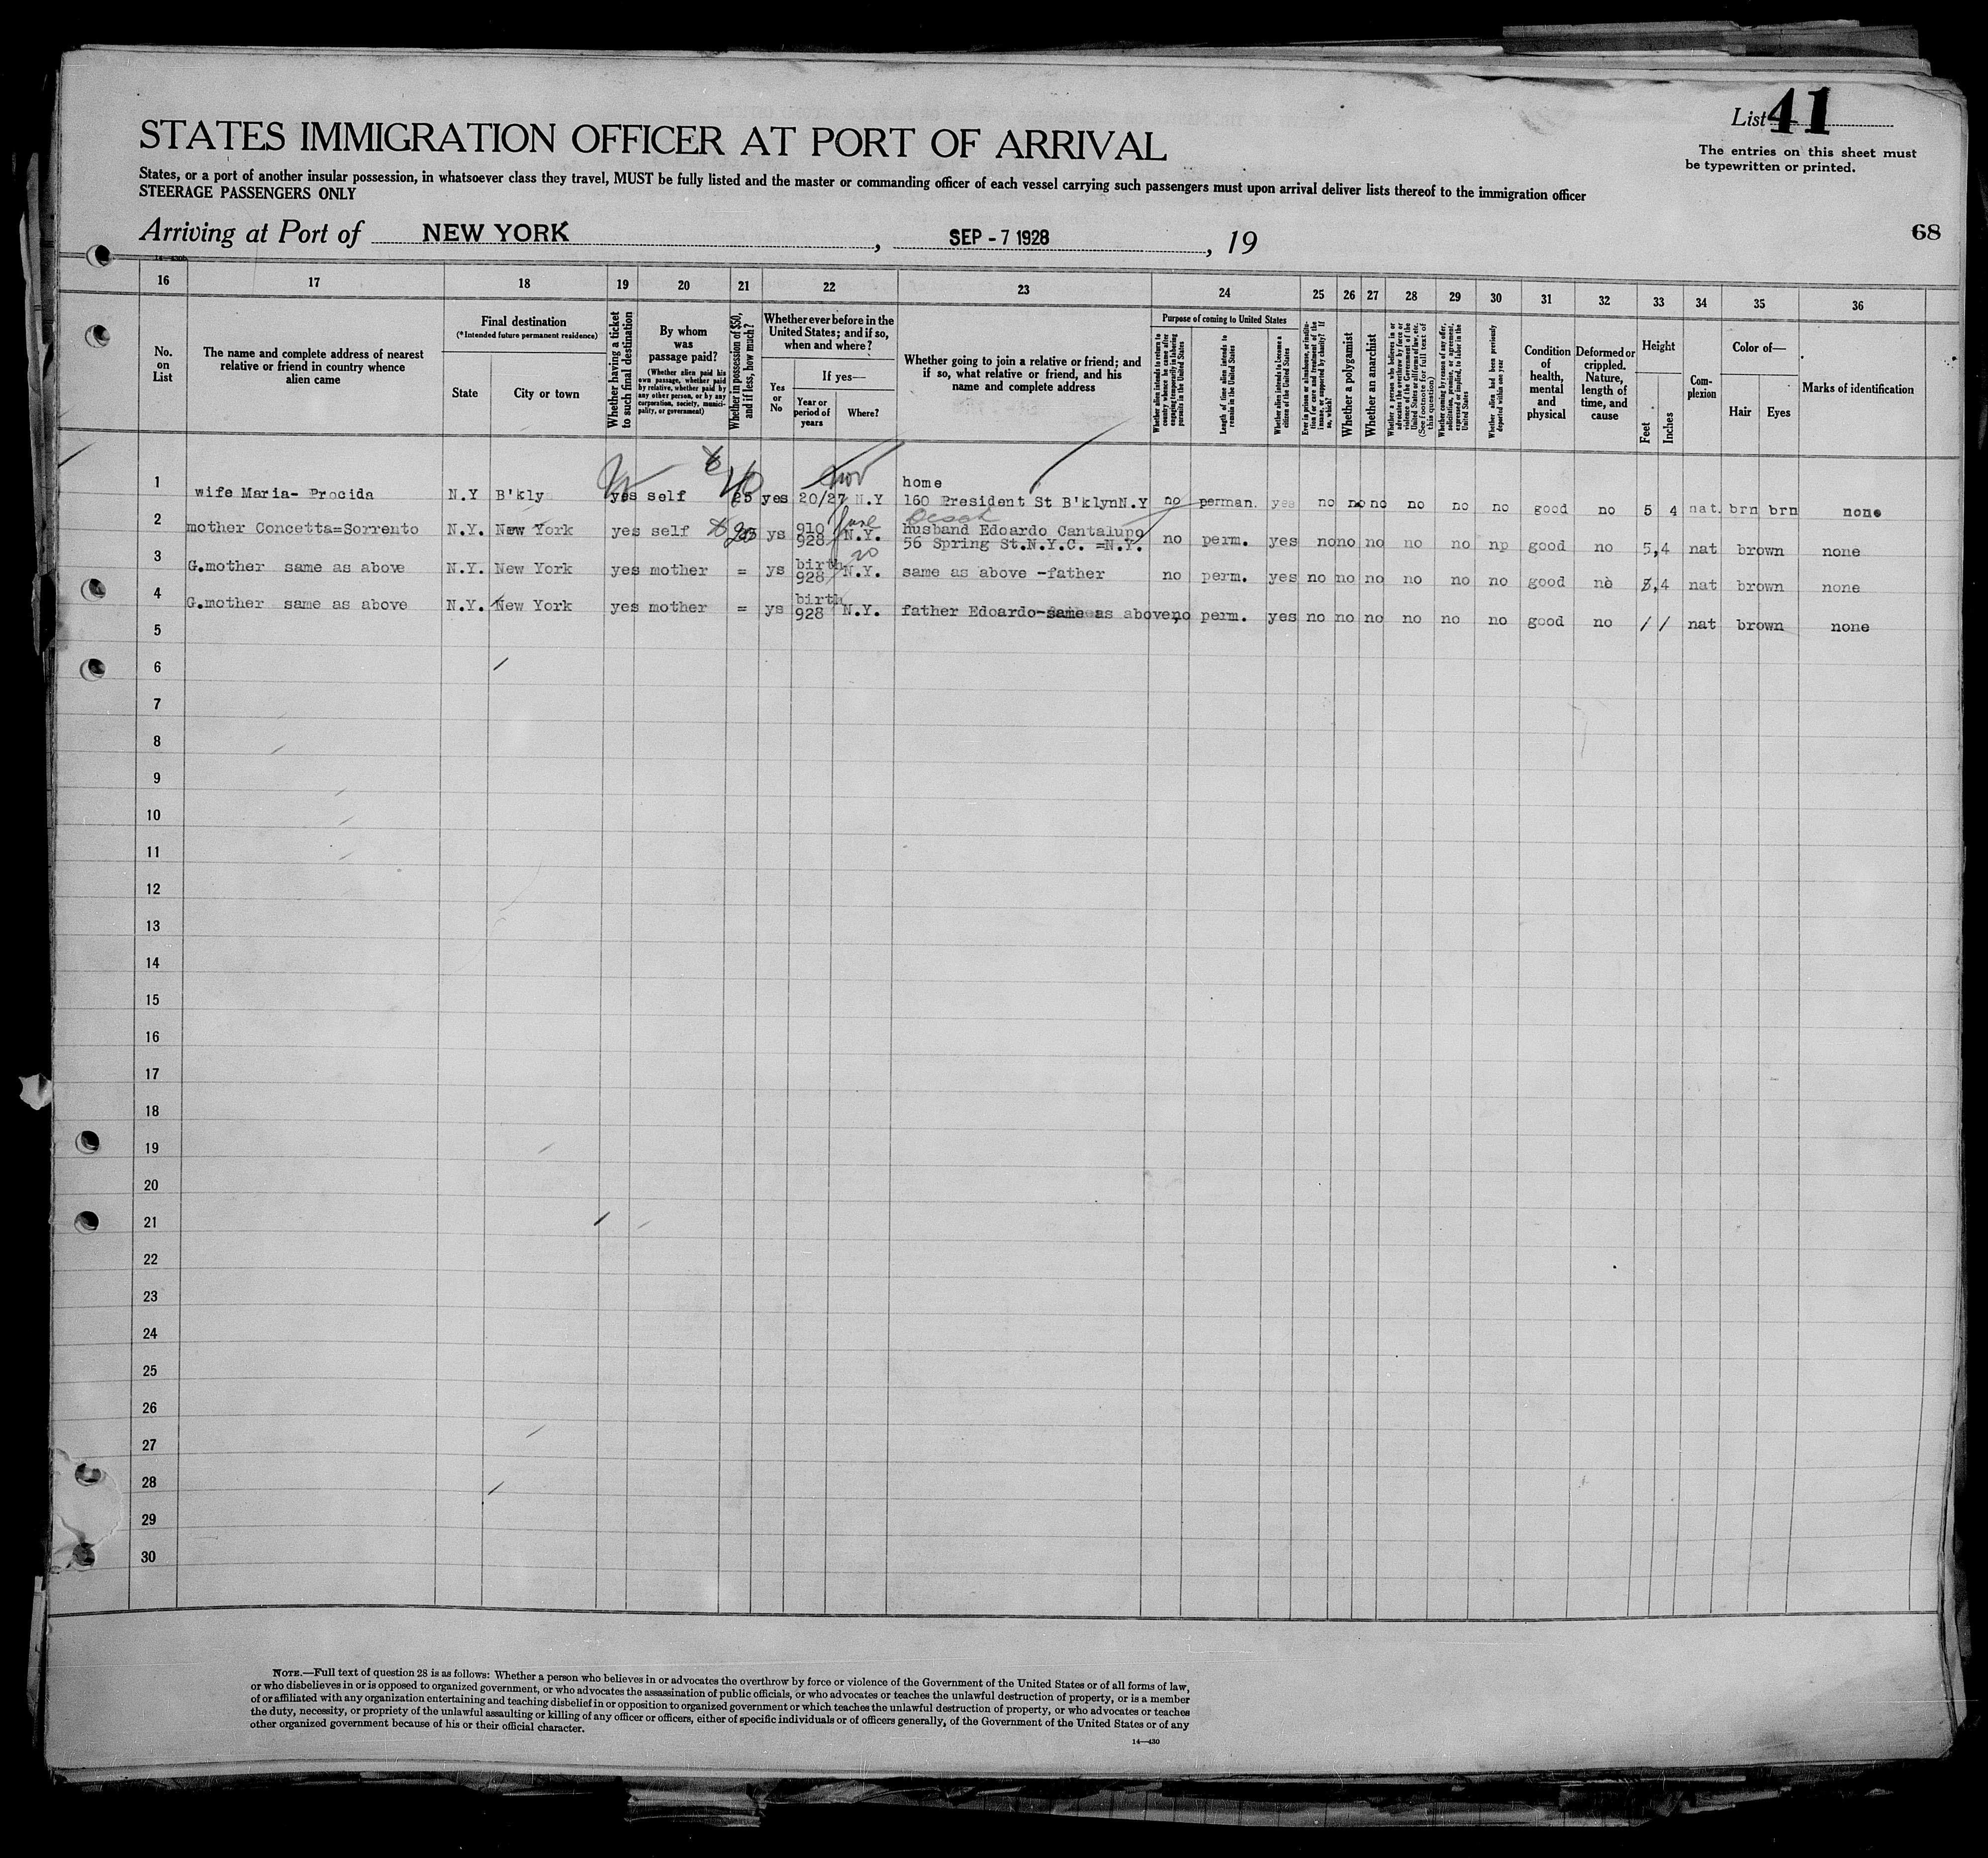 List 41
The entries on this sheet must
be typewritten or printed.
STATES IMMIGRATION OFFICER AT PORT OF ARRIVAL
States, or a port of another insular possession, in whatsoever class they travel, MUST be fully listed and the master or commanding officer of each vessel carrying such passengers must upon arrival deliver lists thereof to the immigration officer
STEERAGE PASSENGERS ONLY
Arriving at Port of NEW YORK, SEP - 7 1928, 19
68
14—430b
16 17 18 19 20 21 22 23 24 25 26 27 28 29 30 31 32 33 34 35 36
No.
on
List
The name and complete address of nearest
relative or friend in country whence
alien came
Final destination
(*Intended future permanent residence)
State
City or town
Whether having a ticket
to such final destination
By whom
was
passage paid?
(Whether alien paid his
own passage, whether paid
by relative, whether paid by
any other person, or by any
corporation, society, munici-
pality, or government)
Whether in possession of $50,
and if less, how much?
Whether ever before in the
United States; and if so,
when and where?
Yes
or
No
If yes—
Year or
period of
years
Where?
Whether going to join a relative or friend; and
if so, what relative or friend, and his
name and complete address
Purpose of coming to United States
Whether alien intends to return to
country whence he came after
engaging temporarily in laboring
pursuits in the United States
Length of time alien intends to
remain in the United States
Whether alien intends to become a
citizen of the United States
Ever in prison or almshouse, or institu-
tion for care and treatment of the
insane, or supported by charity? If
so, which?
Whether a polygamist
Whether an anarchist
Whether a person who believes in or
advocates the overthrow by force or
violence of the Government of the
United States or all forms of law, etc.
(See footnote for full text of
this question)
Whether coming by reason of any offer,
solicitation, promise, or agreement,
expressed or implied, to labor in the
United States
Whether alien had been previously
deported within one year
Condition
of
health,
mental
and
physical
Deformed or
crippled.
Nature,
length of
time, and
cause
Height
Feet
Inches
Com-
plexion
Color of—
Hair
Eyes
Marks of identification
Nov
home
1 wife Maria- Procida N.Y B'kly yes self 25 40 yes 20/27 N.Y 160 President St B'klynN.Y no perman. yes no no no no no no good no 5 4 nat. brn brn none
2 mother Concetta=Sorrento N.Y. New York yes self ys 910 928 June N.Y. husband Edoardo Cantalupo
56 Spring St.N.Y.C. =N.Y. no perm. yes no no no no no np good no 5,4 nat brown none
3 G.mother same as above N.Y. New York yes mother = ys birth 928 20 N.Y. same as above -father no perm. yes no no no no no no good no 3,4 nat brown none
4 G.mother same as above N.Y. New York yes mother = ys birth 928 N.Y. father Edoardo-same as above, no perm. yes no no no no no no good no / / nat brown none
5
6
7
8
9
10
11
12
13
14
15
16
17
18
19
20
21
22
23
24
25
26
27
28
29
30
NOTE.—Full text of question 28 is as follows: Whether a person who believes in or advocates the overthrow by force or violence of the Government of the United States or of all forms of law,
or who disbelieves in or is opposed to organized government, or who advocates the assassination of public officials, or who advocates or teaches the unlawful destruction of property, or is a member
of or affiliated with any organization entertaining and teaching disbelief in or opposition to organized government or which teaches the unlawful destruction of property, or who advocates or teaches
the duty, necessity, or propriety of the unlawful assaulting or killing of any officer or officers, either of specific individuals or of officers generally, of the Government of the United States or of any
other organized government because of his or their official character.
14—430